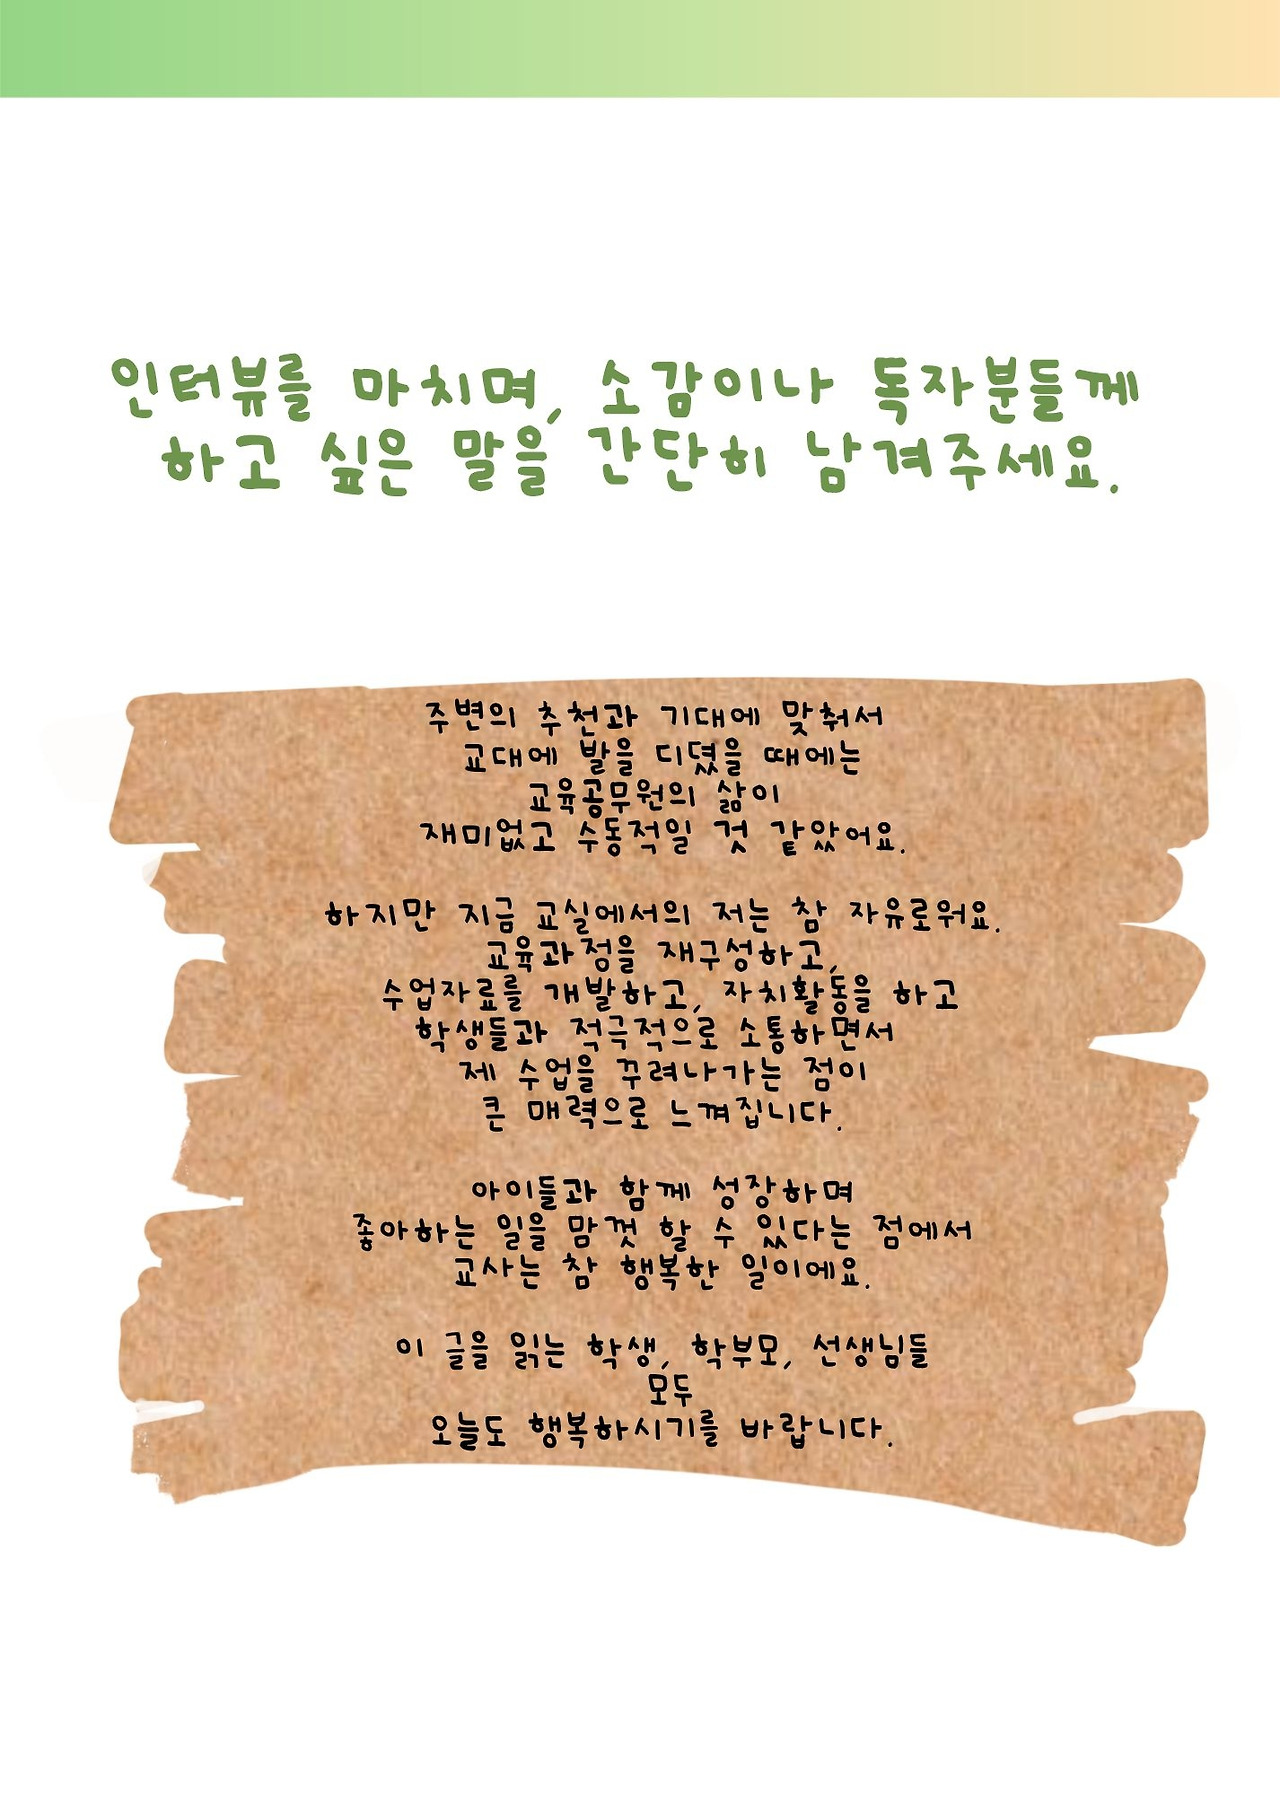 인터뷰를 마치며, 소감이나 독자분들께
하고 싶은 말을 간단히 남겨주세요.
주변의 추천과 기대에 맞춰서
교대에 발을 디뎠을 때에는
교육공무원의 삶이
재미없고 수동적일 것 같았어요.
하지만 지금 교실에서의 저는 참 자유로워요.
교육과정을 재구성하고,
수업자료를 개발하고, 자치활동을 하고
학생들과 적극적으로 소통하면서
제 수업을 꾸려나가는 점이
큰 매력으로 느껴집니다.
아이들과 함께 성장하며
좋아하는 일을 맘껏 할 수 있다는 점에서
교사는 참 행복한 일이에요.
이 글을 읽는 학생, 학부모, 선생님들
모두
오늘도 행복하시기를 바랍니다.